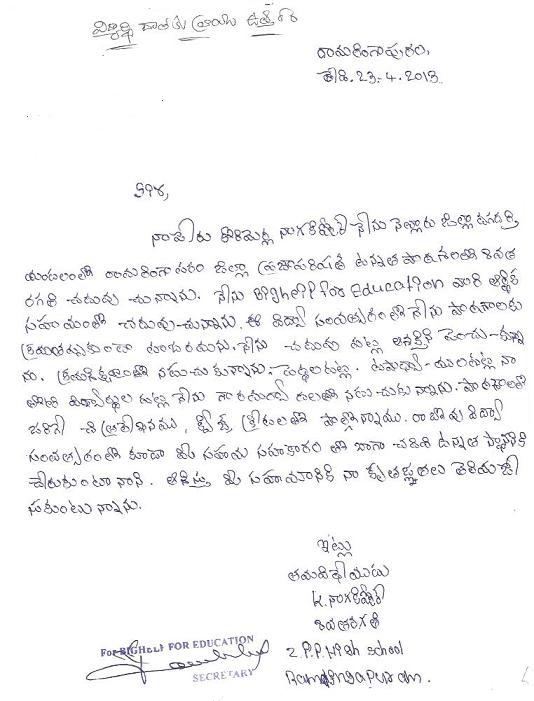 విద్యార్థి దాతకు వ్రాయు ఉత్తరం
రామలింగాపురం,
తేది. 23-4-2013
సార్,
నా పేరు నాగకిషోర్ నేను నెల్లూరు జిల్లా
మండలంలో రామలింగాపురం జిల్లా ప్రజాపరిషత్ ఉన్నత పాఠశాలలో 8వ
తరగతి చదువు చున్నాను. నేను BigHelp For Education వారి ఆర్థిక
సహాయంతో చదువు-చున్నాను. ఈ విద్యా సంవత్సరంలో నేను పాఠశాలకు
క్రమంతప్పకుండా నేను చదువు పట్ల ఆసక్తిని పెంచు-కున్నా
ను. క్రమశిక్షణతో నడుచు కున్నాను. పెద్దలపట్ల, ఉపాధ్యా-యులపట్ల నా
తోటి విద్యార్థుల పట్ల నేను నడుచుకున్నాను. పాఠశాలలో
జరిగే చిత్రలేఖనము, క్విజ్ లలో పాల్గొన్నాను. రాబోవు విద్యా
సంవత్సరంలో కూడా మీ సహాయ సహకారం తో బాగా చదివి ఉన్నత స్థానానికి
చేరుకుంటానని. ఆశిస్తూ మీ సహాయానికి నా కృతజ్ఞతలు తెలియజే
సుకుంటున్నాను.
ఇట్లు
తమవిధేయుడు
K. నాగకిషోర్
8వతరగతి
Z.P.P. High school
Ramalingapuram.
For BIGHELP FOR EDUCATION
SECRETARY